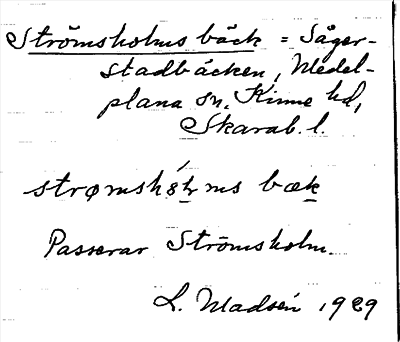 Strömsholms bäck = Såger-
stadbäcken, Medel-
plana sn, Kinne hd,
Skarab. l.
strømshólms bæk
Passerar Strömsholm.
L. Madsén 1929